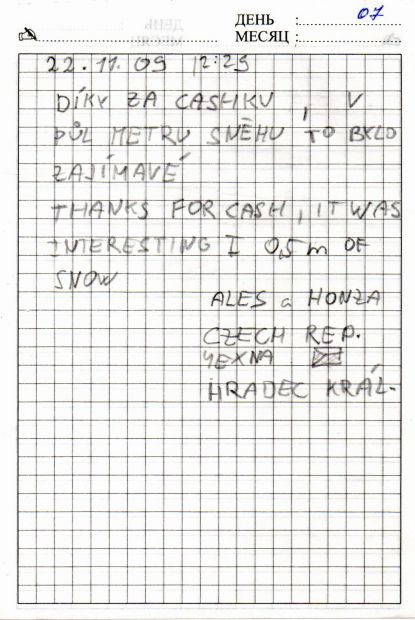 ДЕНЬ : 07
МЕСЯЦ :
22.11.09 12:29
DÍKY ZA CASHKU, V
PŮL METRU SNĚHU TO BYLO
ZAJÍMAVÉ
THANKS FOR CASH, IT WAS
INTERESTING I 0,5m OF
SNOW
ALES a HONZA
CZECH REP.
ЧЕХИА
HRADEC KRÁL.